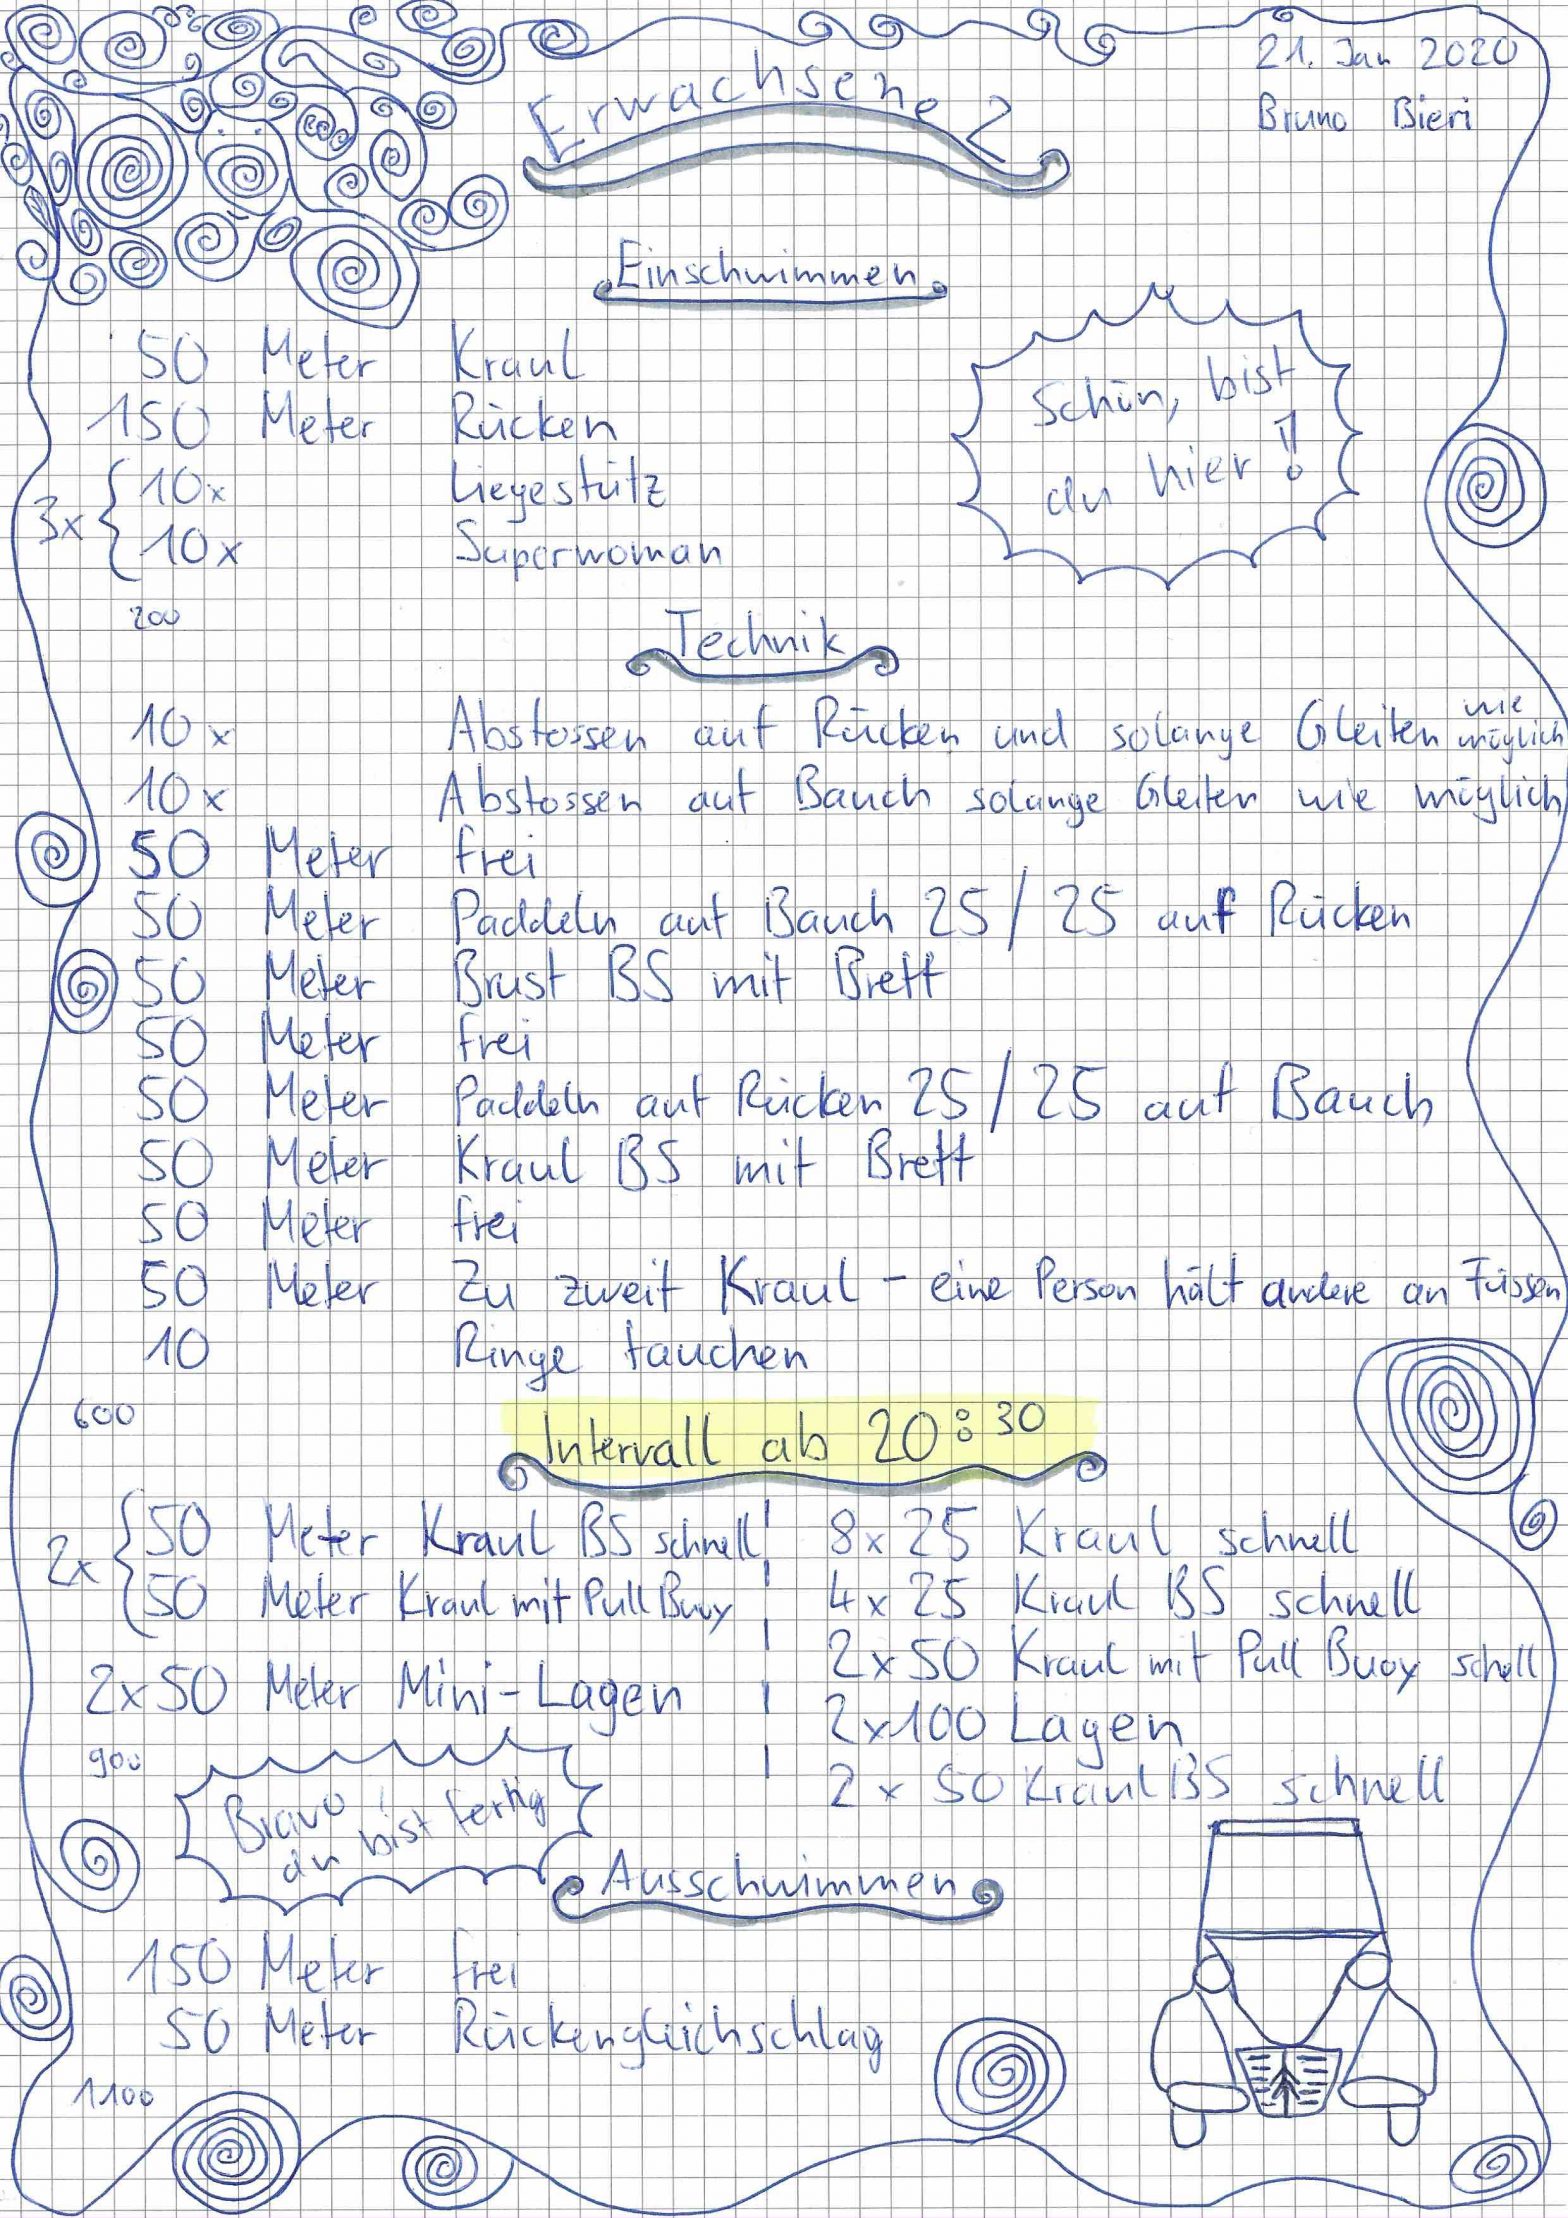 21. Jan 2020
Bruno Bieri
Erwachsene 2
Einschwimmen
50 Meter Kraul
150 Meter Rücken
3x { 10x Liegestütz
10x Superwoman
Schön, bist
du hier!!
200
Technik
10x Abstossen auf Rücken und solange Gleiten wie möglich
10x Abstossen auf Bauch solange Gleiten wie möglich
50 Meter frei
50 Meter Paddeln auf Bauch 25/25 auf Rücken
50 Meter Brust BS mit Brett
50 Meter frei
50 Meter Paddeln auf Rücken 25/25 auf Bauch
50 Meter Kraul BS mit Brett
50 Meter frei
50 Meter Zu zweit Kraul - eine Person hält andere an Füssen
10 Ringe tauchen
600
Intervall ab 20:30
2x { 50 Meter Kraul BS schnell
50 Meter Kraul mit Pull Buoy
2x50 Meter Mini-Lagen
900
8x25 Kraul schnell
4x25 Kraul BS schnell
2x50 Kraul mit Pull Buoy schell
2x100 Lagen
2x50 Kraul BS schnell
Bravo!
du bist fertig
Ausschwimmen
150 Meter frei
50 Meter Rückengleichschlag
1100